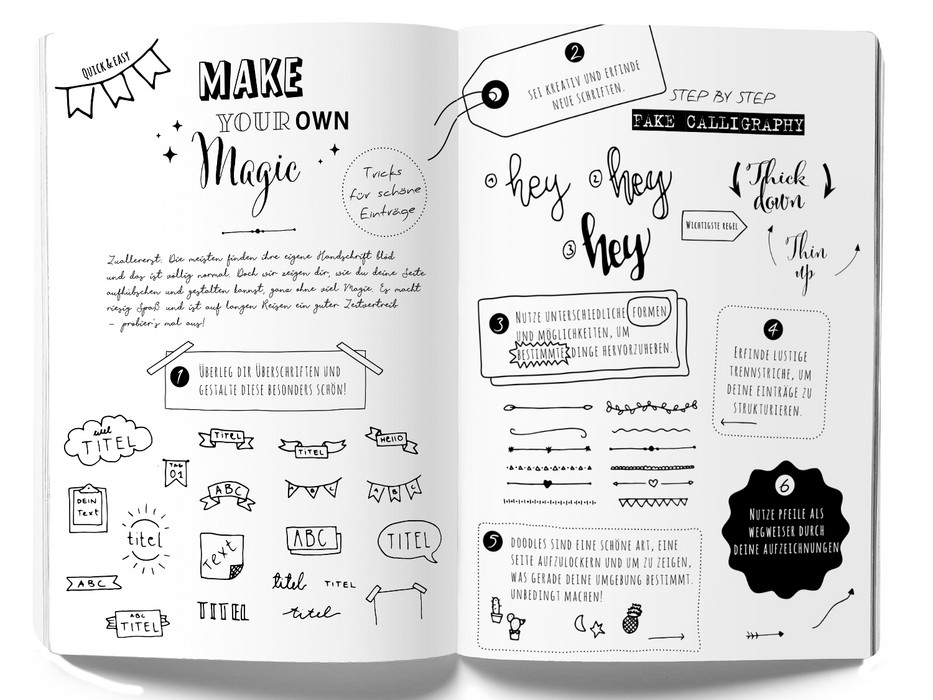 QUICK & EASY
MAKE
YOUR OWN
Magic
Tricks
für schöne
Einträge
Zuallererst: Die meisten finden ihre eigene Handschrift blöd
und das ist völlig normal. Doch wir zeigen dir, wie du deine Seite
aufhübschen und gestalten kannst, ganz ohne viel Magie. Es macht
riesig Spaß und ist auf langen Reisen ein guter Zeitvertreib
– probier's mal aus!
1 ÜBERLEG DIR ÜBERSCHRIFTEN UND
GESTALTE DIESE BESONDERS SCHÖN!
TITEL
TITEL
TITEL
HELLO
TAG
01
DEIN
Text
titel
ABC
ABC
ABC
Text
ABC
TITEL
ABC
titel
TITEL
ABC
TITEL
TITEL
titel
2
SEI KREATIV UND ERFINDE
NEUE SCHRIFTEN.
STEP BY STEP
FAKE CALLIGRAPHY
1 hey
2 hey
3 hey
WICHTIGSTE REGEL
Thick
down
Thin
up
3 NUTZE UNTERSCHIEDLICHE FORMEN
UND MÖGLICHKEITEN, UM
BESTIMMTE DINGE HERVORZUHEBEN.
4
ERFINDE LUSTIGE
TRENNSTRICHE, UM
DEINE EINTRÄGE ZU
STRUKTURIEREN.
5 DOODLES SIND EINE SCHÖNE ART, EINE
SEITE AUFZULOCKERN UND UM ZU ZEIGEN,
WAS GERADE DEINE UMGEBUNG BESTIMMT.
UNBEDINGT MACHEN!
6
NUTZE PFEILE ALS
WEGWEISER DURCH
DEINE AUFZEICHNUNGEN